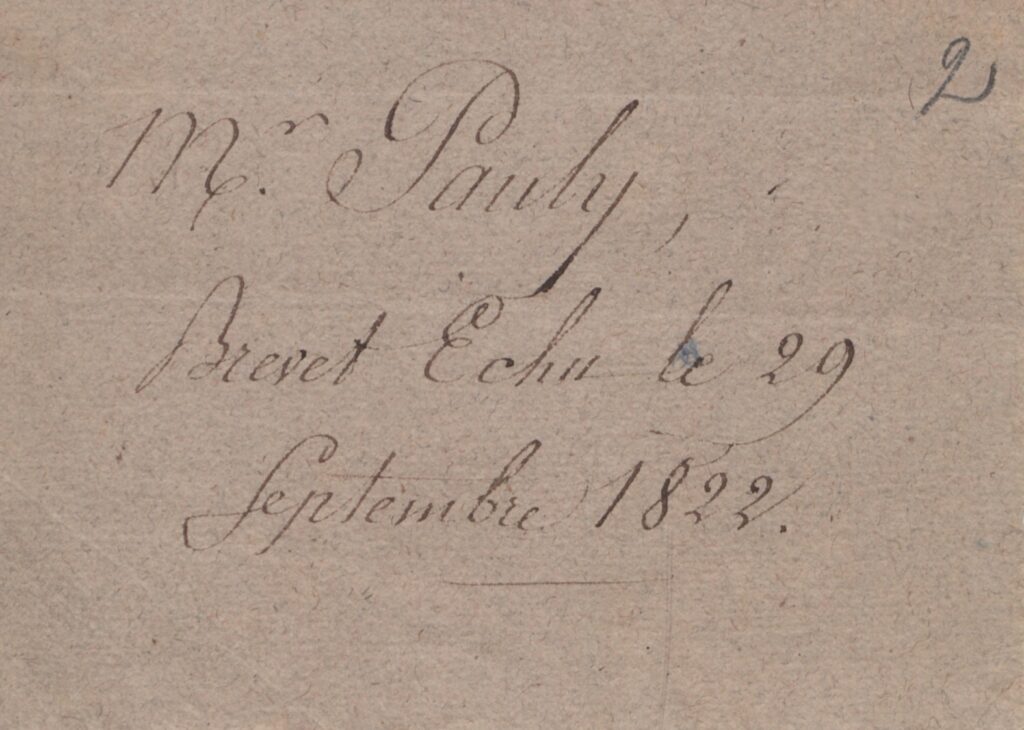 2
Mr. Pauly,
Brevet Echu le 29
Septembre 1822.